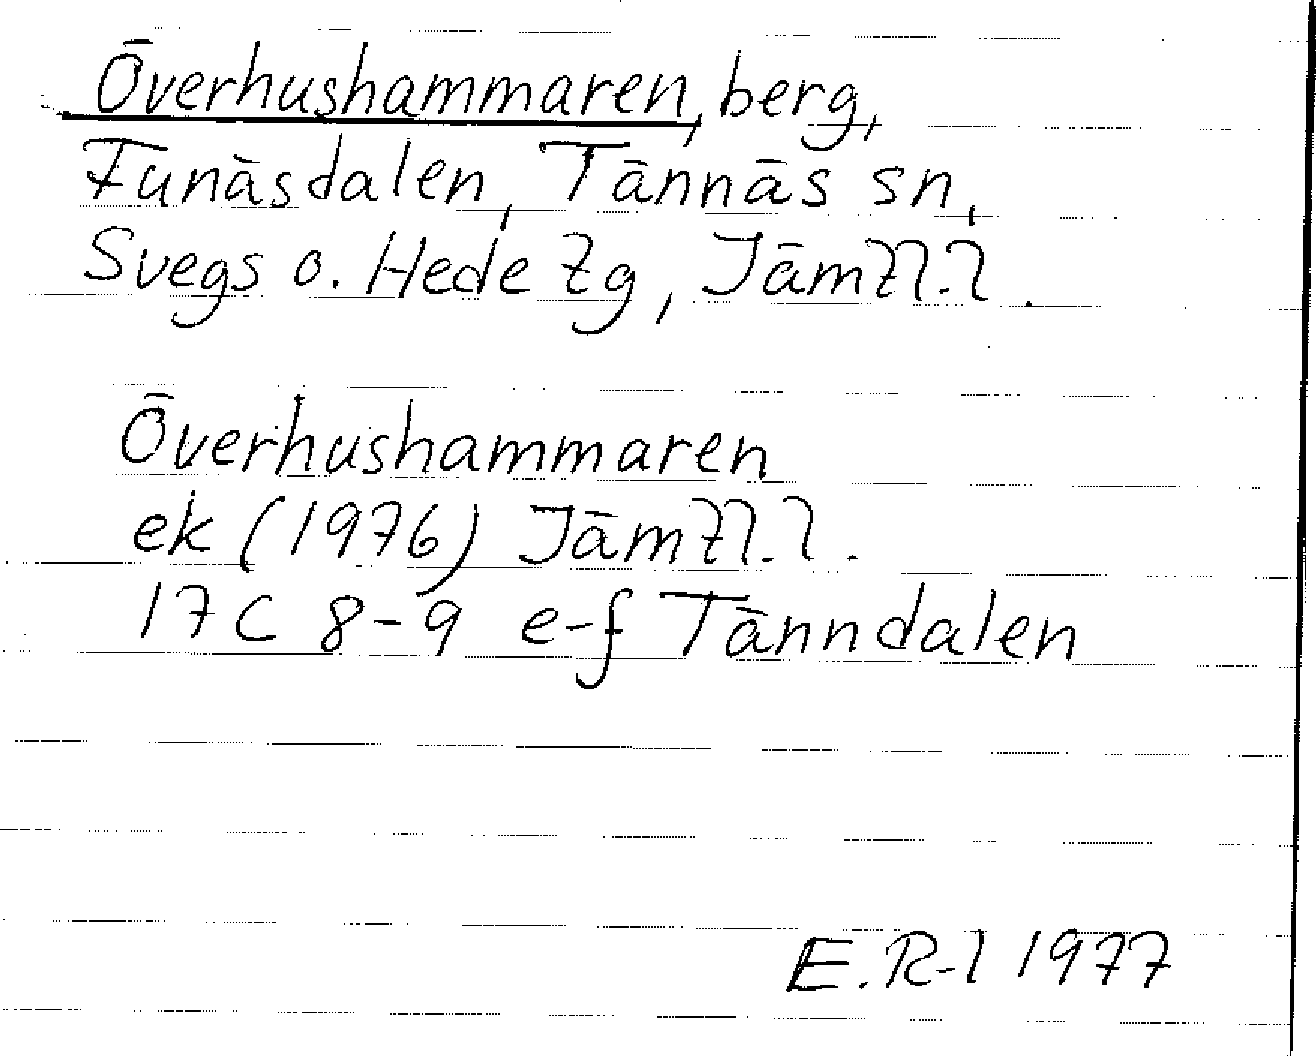 Överhushammaren, berg,
Funäsdalen, Tännäs sn,
Svegs o. Hede tg, Jämtl.l.
Överhushammaren
ek (1976) Jämtl.l.
17C 8-9 e-f Tänndalen
E.R-l 1977